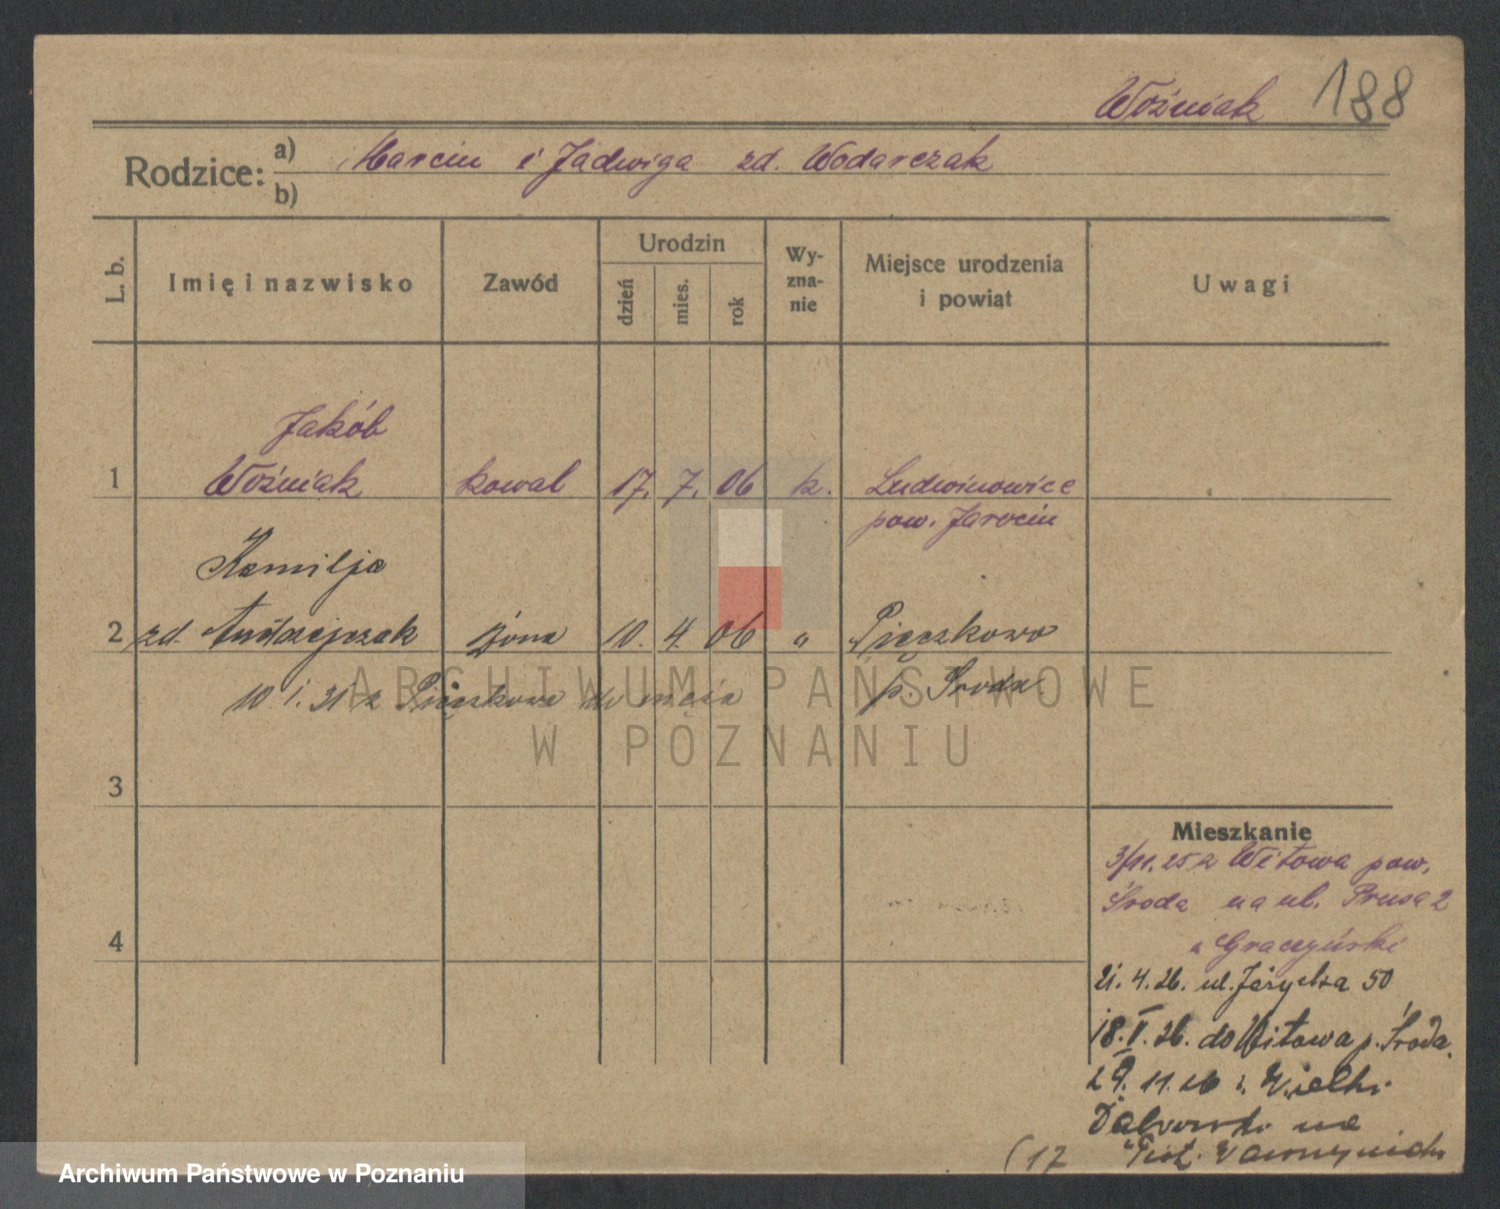 Woźniak 188
Rodzice: a) Marcin i Jadwiga zd. Wodarczak
b)
L. b. Imię i nazwisko Zawód Urodzin dzień mies. rok Wyznanie Miejsce urodzenia i powiat Uwagi
Jakób
1 Woźniak kowal 17. 7. 06 k. Ludwinowice
pow. Jarocin
Kamilja
2 zd. Andrzejczak żona 10. 4. 06 " Pięczkowo
10. 1. 31 z Pięczkowa do męża p. Środa
ARCHIWUM PAŃSTWOWE
W POZNANIU
3
Mieszkanie
3/11. 25 z Witowa pow.
Środa na ul. Prusa 2
u Graczyński
4
21. 4. 26. ul. Jeżycka 50
18. V. 26. do Witowa p. Środa
29. 11. 26 z. Wielki
na
(17 Piot. Wawrzyniak
Archiwum Państwowe w Poznaniu